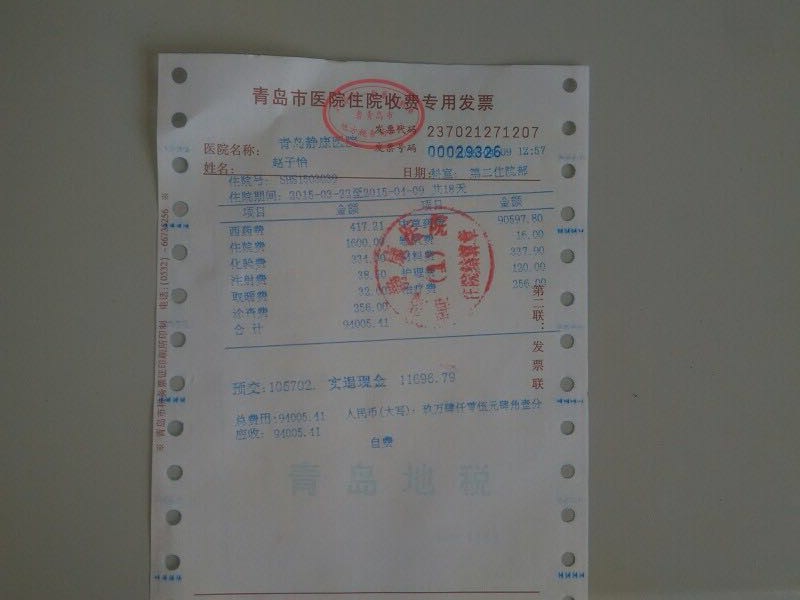 青岛市医院住院收费专用发票
发票代码 237021271207
医院名称: 青岛静康医院 发票号码 00029326 12:57
姓名: 赵子怡 日期: 科室: 第二住院部
住院号:
住院期间: 2015-03-22至2015-04-09 共18天
项目 金额 项目 金额
西药费 417.21 90597.80
住院费 1600.00 16.00
化验费 337.90
注射费 38.50 护理费 120.00
取暖费 32.00 治疗费 256.00
诊查费 256.00
合计 94005.41
第二联:发票联
预交:105702. 实退现金 11696.79
总费用:94005.41 人民币(大写): 玖万肆仟零伍元肆角壹分
应收: 94005.41
自费
青岛地税
住院结算章